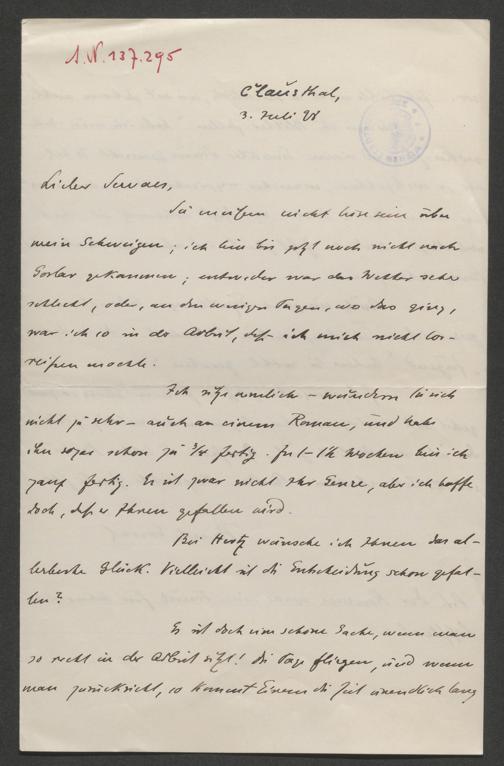 A.N. 137.295
Clausthal,
3. Juli 28
Lieber Servaes,
Sie müssen nicht böse sein über
mein Schweigen; ich bin bis jetzt noch nicht nach
Goslar gekommen; entweder war das Wetter sehr
schlecht, oder, an den wenigen Tagen, wo das ging,
war ich so in der Arbeit, daß ich mich nicht los-
reißen mochte.
Ich sitze nämlich – wundern Sie sich
nicht zu sehr – auch an einem Roman, und habe
ihn sogar schon zu 3/4 fertig. In 1–1½ Wochen bin ich
ganz fertig. Es ist zwar nicht Ihr Genre, aber ich hoffe
doch, daß er Ihnen gefallen wird.
Bei Hertz wünsche ich Ihnen das al-
lerbeste Glück. Vielleicht ist die Entscheidung schon gefal-
len?
Es ist doch eine schöne Sache, wenn man
so recht in der Arbeit sitzt! Die Tage fliegen, und wenn
man zurücksieht, so kommt Einem die Zeit unendlich lang